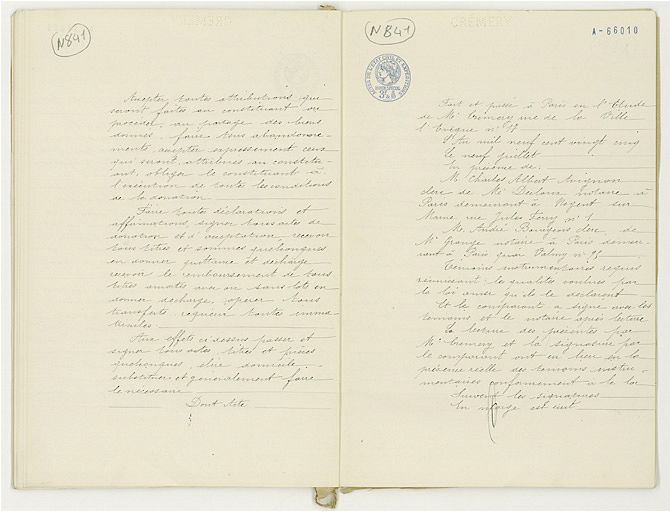 N 841
Accepter toutes attributions qui
seront faites au constituant ou
procéder au partage des biens
donnés - faire tous abandonne-
ments accepter expressement ceux
qui seront attribués au constitu-
ant, obliger le constituant à
l'exécution de toutes les conditions
de la donation
Faire toutes déclarations et
affirmations, signer tous actes de
donation et d'acceptation recevoir
tous titres et sommes quelconques
en donner quittance et décharge
recevoir le remboursement de tous
titres amortis avec ou sans lots en
donner décharge, opérer tous
transferts requérir toutes imma-
tricules
Aux effets ci dessus passer et
signer tous actes titres et pièces
quelconques élire domicile
substituer et généralement faire
le nécessaire
Dont Acte
N 841
CRÉMERY
A-66010
Fait et passé à Paris en l'Etude
de Me Crémery rue de la Ville
l'Evêque no
L'An mil neuf cent vingt cinq
le neuf juillet
En présence de
M. Charles Albert Avignon
clerc de Me Decloux Notaire à
Paris demeurant à Nogent sur
Marne rue Jules Ferry no 1
M. André Bourgeois clerc de
Me Grange notaire à Paris demeu-
rant à Paris quai Valmy no
Témoins instrumentaires requis
réunissant les qualités voulues par
la loi ainsi qu'ils le déclarent
Et le comparant a signé avec les
témoins et le notaire après lecture
La lecture des présentes par
Me Crémery et la signature par
le comparant ont eu lieu en la
présence réelle des témoins instru-
mentaires conformément à la loi
Suivent les signatures
En marge est écrit